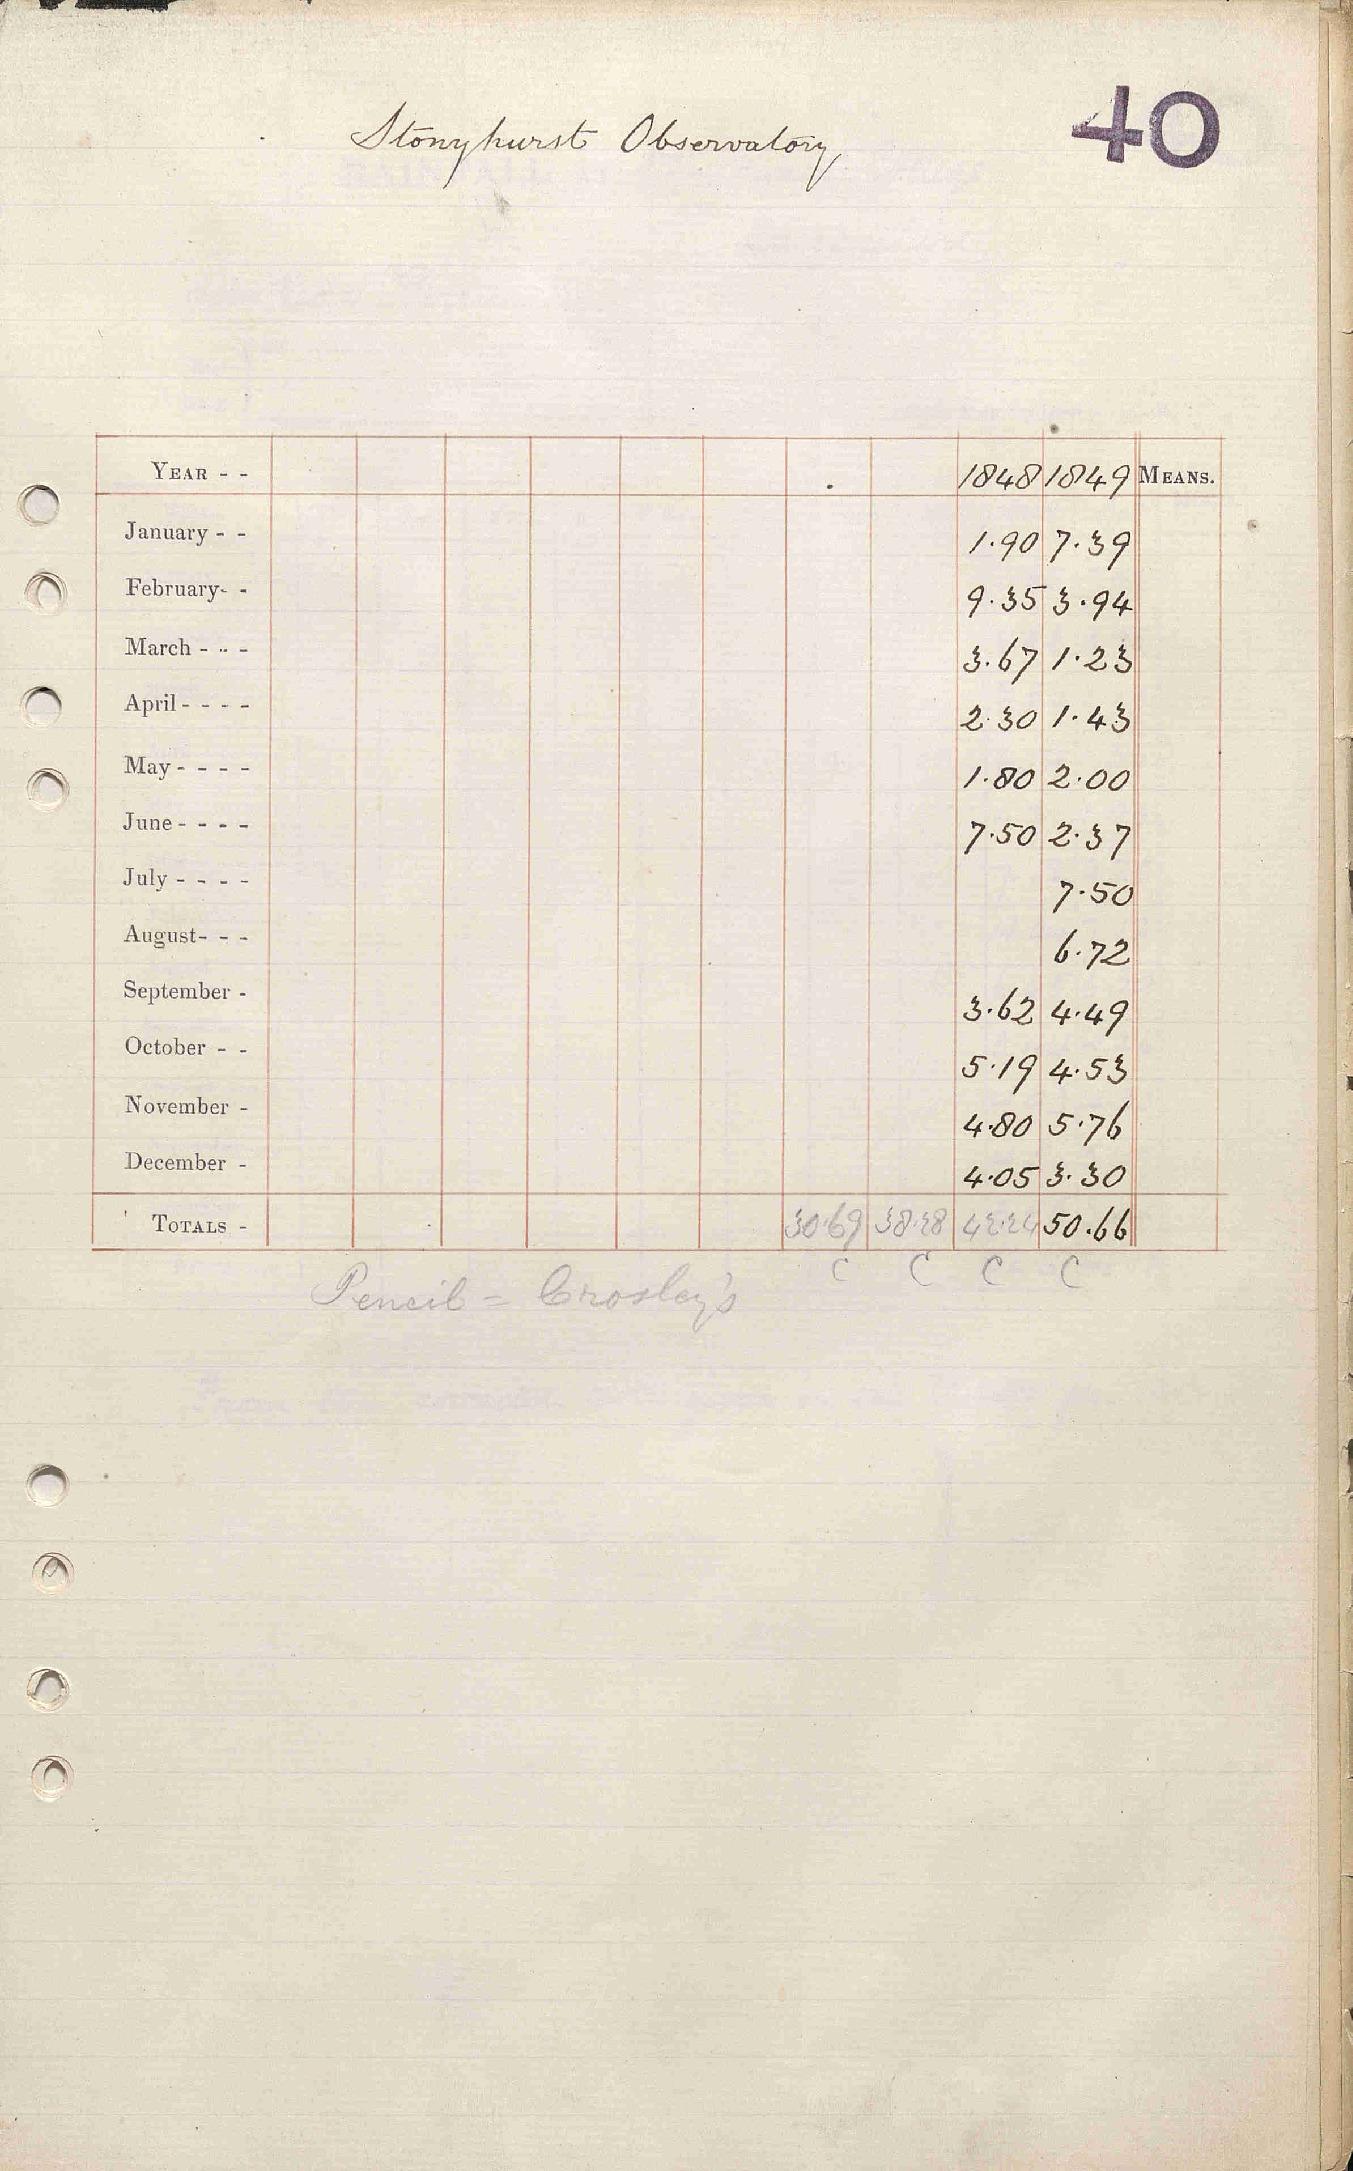 Stonyhurst Observatory
40
YEAR - - 1848 1849 MEANS.
January - - 1.90 7.39
February- - 9.35 3.94
March - - - 3.67 1.23
April - - - - 2.30 1.43
May - - - - 1.80 2.00
June - - - - 7.50 2.37
July - - - - 7.50
August- - - 6.72
September - 3.62 4.49
October - - 5.19 4.53
November - 4.80 5.76
December - 4.05 3.30
TOTALS - 30.69 38.28 42.24 50.66
C C C C
Pencil = Crosley's